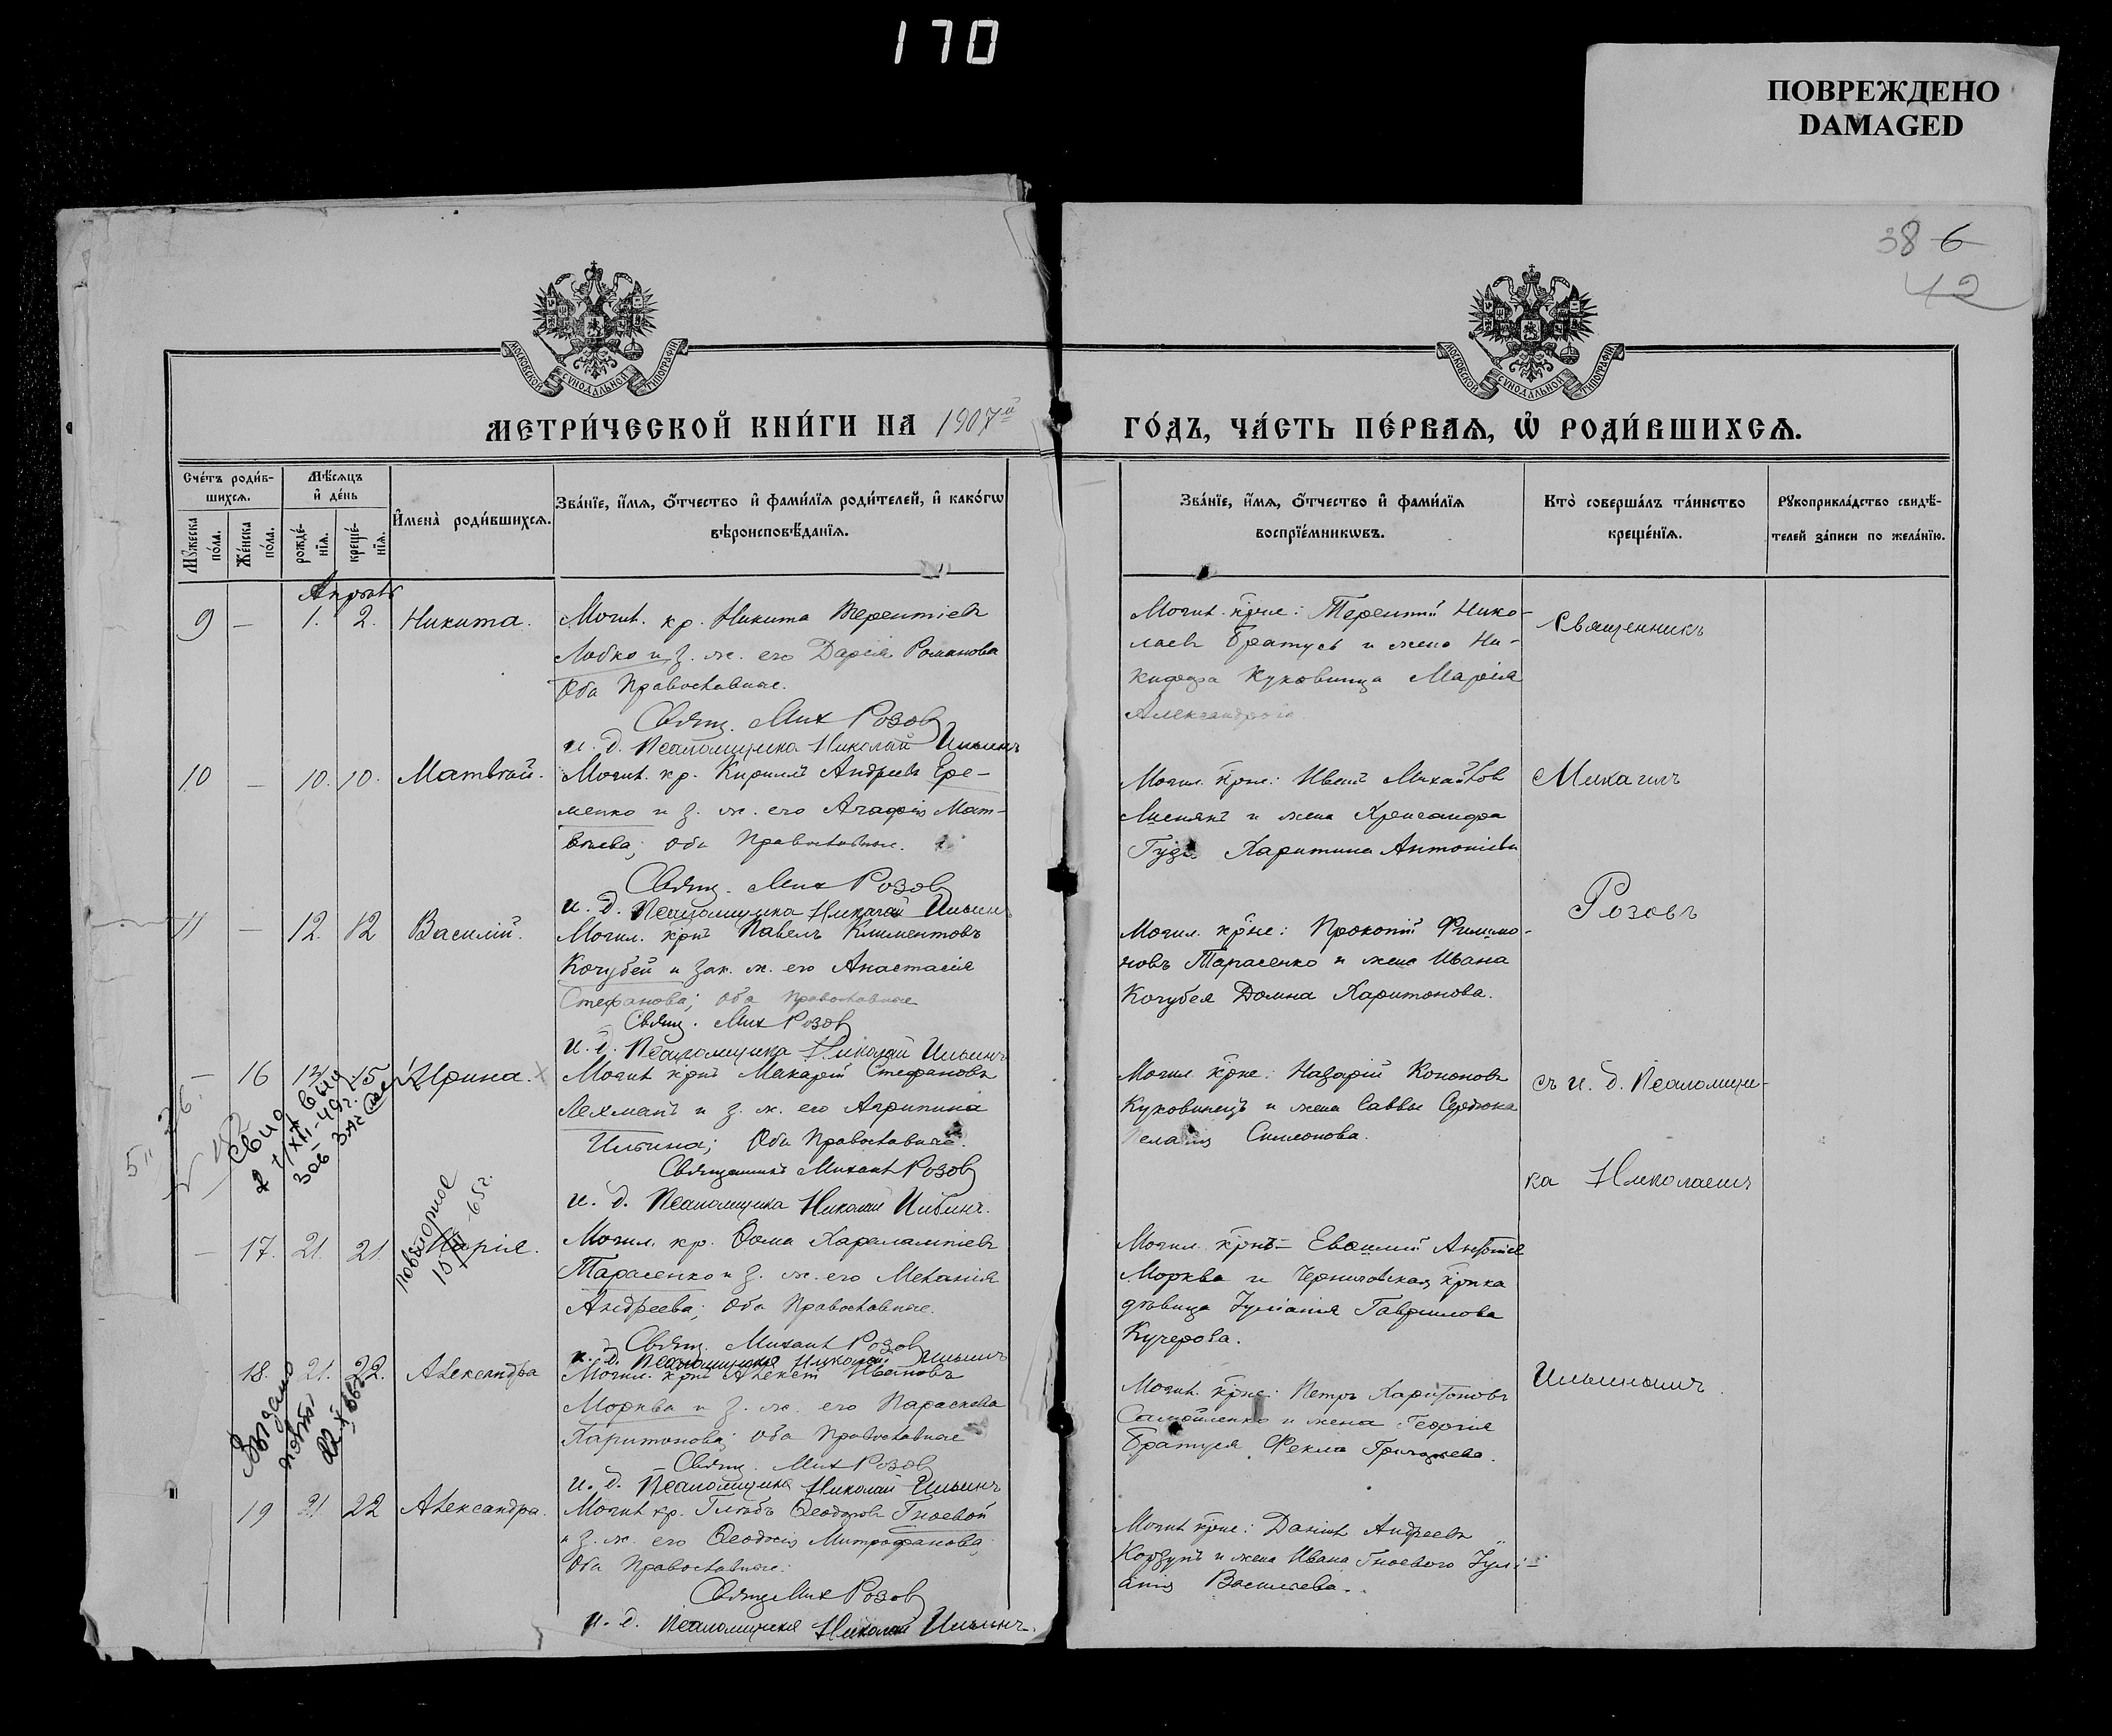 170
ПОВРЕЖДЕНО
DAMAGED
38 6
42
МОСКОВСКОЙ СѴНОДАЛЬНОЙ ТИПОГРАФІИ
МОСКОВСКОЙ СѴНОДАЛЬНОЙ ТИПОГРАФІИ
МЕТРИ́ЧЕСКОЙ КНИ́ГИ НА 1907й
ГО́ДЪ, ЧА́СТЬ ПЕ́РВАѦ, Ѽ РОДИ́ВШИХСѦ.
Сче́тъ роди́в-
шихсѧ.
Мѣ́сѧцъ
и҆ де́нь
Мꙋ́жеска по́ла.
Же́нска по́ла.
рожде́-
нїѧ.
креще́-
нїѧ.
И҆мена̀ роди́вшихсѧ.
Зва́нїе, и҆́мѧ, ѻ҆́тчество и҆ фами́лїѧ роди́телей, и҆ како́гѡ
вѣроисповѣ́данїѧ.
Зва́нїе, и҆́мѧ, ѻ҆́тчество и҆ фами́лїѧ
воспрїе́мникѡвъ.
Кто̀ соверша́лъ та́инство
креще́нїѧ.
Рꙋкоприкла́дство свидѣ́-
телей за́писи по жела́нїю.
Апрѣль
9 — 1. 2. Никита.
Могил. кр. Никита Терентіевъ
Лобко и з. ж. его Дарія Романова
Оба Православные.
Свящ. Мих Розовъ
И. д. Псаломщика Николай Ильинъ
Могил. крне: Терентій Нико-
лаевъ Братусь и жена Ни-
кифора Куковинца Марія
Александрова
Священникъ
10 — 10. 10. Матвѣй.
Могил. кр. Кириллъ Андреевъ Ере-
менко и з. ж. его Агафія Мат-
вѣева; Оба Православные.
Свящ. Мих Розовъ
И. д. Псаломщика Николай Ильинъ
Могил. крне: Иванъ Михайлов
и жена Хрисанфа
Харитина Антоніева
Михаилъ
Розовъ
11 — 12. 12 Василій.
Могил. крнъ Павелъ Климентовъ
Кочубей и зак. ж. его Анастасія
Стефанова; Оба Православные
Свящ. Мих Розовъ
И. д. Псаломщика Николай Ильинъ
Могил. крне: Прокопій Филимо-
новъ Тарасенко и жена Ивана
Кочубея Домна Харитонова.
— 16 15 Ирина.
Могил крнъ Макарій Стефановъ
Лехманъ и з. ж. его Агрипина
Ильина; Оба Православные.
Священникъ Михаилъ Розовъ
И. д. Псаломщика Николай Ильинъ.
Могил. крне: Назарій Кононовъ
Куковинецъ и жена Саввы Сердюка
Пелагія Симеонова.
съ и. д. Псаломщи-
ка Николаемъ
повторное
— 17. 21. 21. Марія.
Могил. кр. Ѳома Харалампіевъ
Тарасенко и з. ж. его Меланія
Андреева; Оба Православные.
Свящ. Михаилъ Розовъ
И. д. Псаломщика Николай Ильинъ
Морква и Черниговская крнка
дѣвица Іуліанія Гаврилова
Кучерова.
18. 21. 22. Александра
Могил. крнъ Алексѣй Ивановъ
Морква и з. ж. его Параскева
Харитонова; Оба Православные
Свящ. Мих Розовъ
И. д. Псаломщика Николай Ильинъ
Могил. крне: Петръ Харитоновъ
Самойленко и жена Георгія
Братуся Фекла
Ильинымъ.
Выдано
19 21 22 Александра.
Могил кр. Глѣбъ Ѳеодоровъ Гноевой
и з. ж. его Ѳеодосія Митрофанова
Оба Православные.
Свящ Мих Розовъ
И. д. Псаломщика Николай Ильинъ.
Могил крне: Даніилъ Андреевъ
Корзунъ и жена Ивана Гноевого Іулі-
анія Васильева.